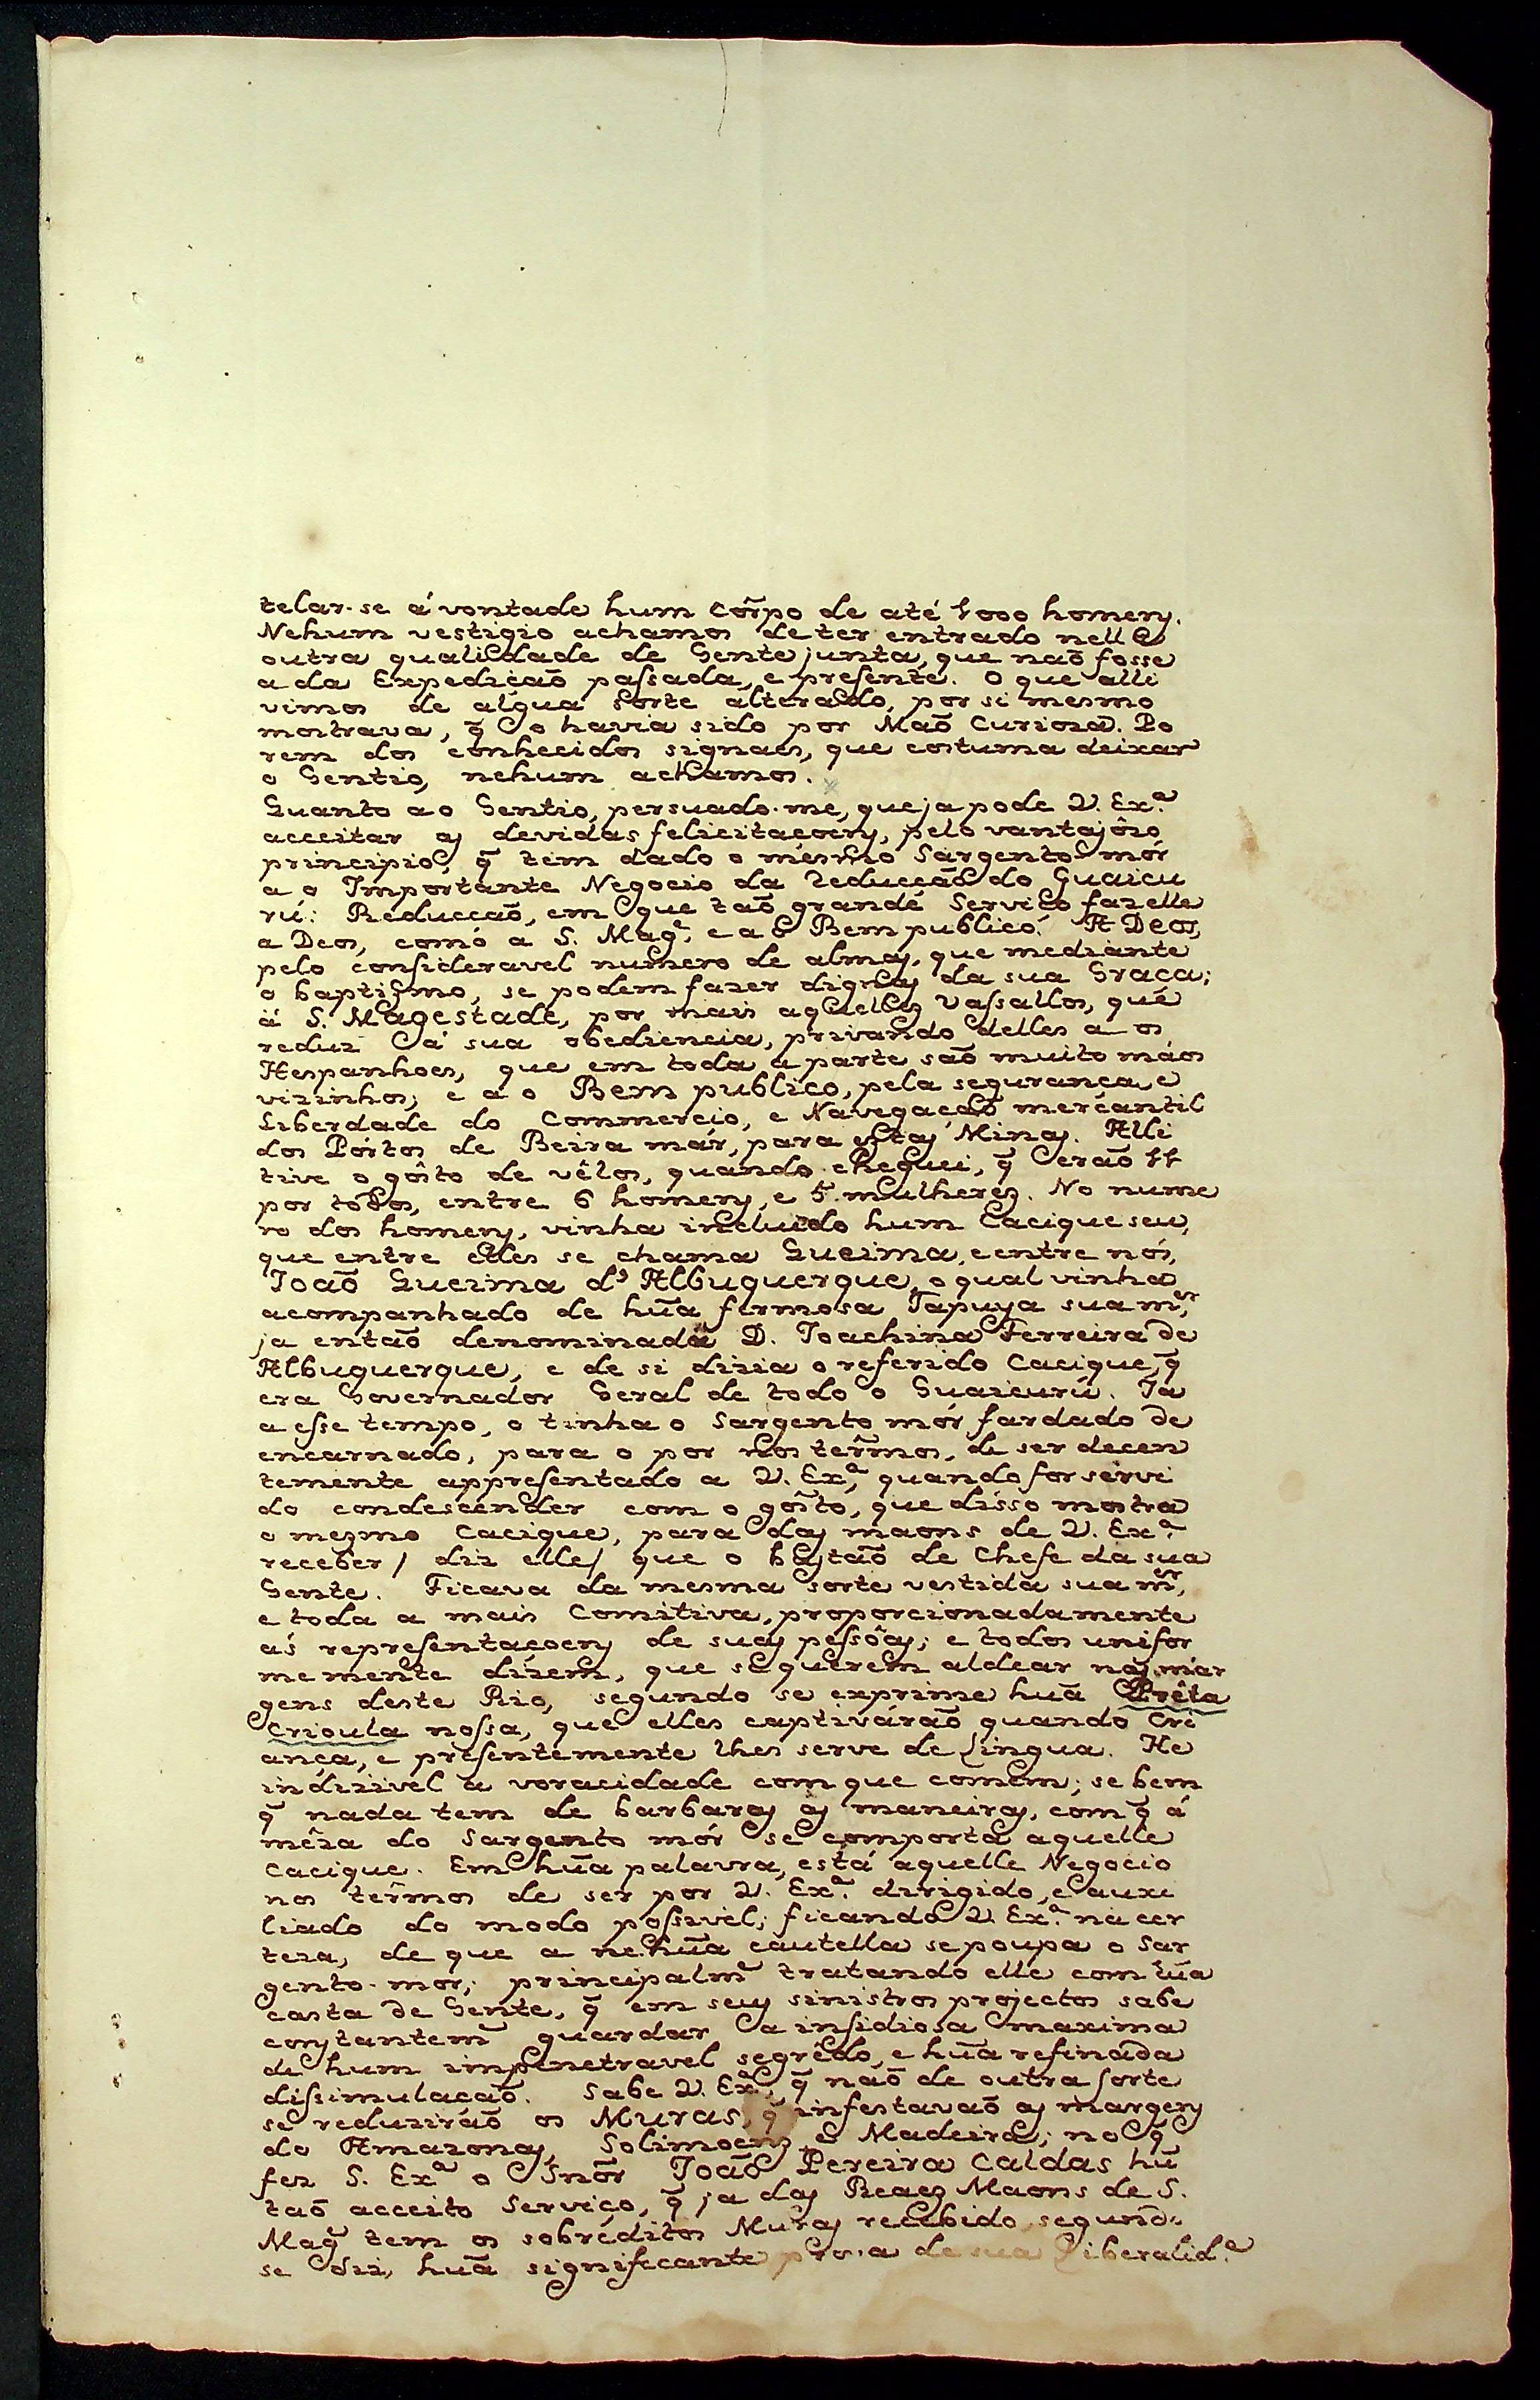 telar-se á vontade hum Côrpo de até 1000 homens.
Nehum vestigio achamos de ter entrado nella
outra qualidade de Gente junta, que naõ fosse
a da Expediçaõ passada, e presente. O que alli
vimos de algũa sorte alterado, por si mesmo
mostrava, q̃ o havia sido por Maõ Curiosa. Po
rem dos conhecidos signaes, que costuma deixar
o Gentio, nehum achamos.
Quanto ao Gentio, persuado-me, que ja pode V. Ex.ª
acceitar as devidas felicitaçoens, pelo vantajôzo
principio, q̃ tem dado o mesmo Sargento-mór
a o Importante Negocio da reducçaõ do Guaicu
rú: Reducçaõ, em que taõ grande Serviço faz elle
a Deos, como a S. Mag.ᵉ, e a o Bem publico. A Deos,
pelo consideravel numero de almas, que mediante
o baptismo, se podem fazer dignas da sua Graça;
á S. Magestade, por mais aquelles Vassallos, que
reduz á sua obediencia, privando delles a os
Hespanhoes, que em toda a parte saõ muito máos
vizinhos; e a o Bem publico, pela segurança, e
Liberdade do Commercio, e Navegaçaõ mercantil
dos Pórtos de Beira mar, para estas Minas. Alli
tive o gôsto de vêlos, quando cheguei, q̃ eraõ 11
por tôdos, entre 6 homens, e 5 mulheres. No nume
ro dos homens, vinha incluido hum Cacique seu,
que entre elles se chama Queima, e entre nós,
Joaõ Queima d' Albuquerque, o qual vinha
acompanhado de hũa fermosa Tapuya sua m.ᵉʳ,
ja entaõ denominada D. Joachina Ferreira de
Albuquerque, e de si dizia o referido Cacique, q̃
era Governador Geral de todo o Guaicurú. Ja
a esse tempo, o tinha o Sargento mór fardado de
encarnado, para o por nos termos, de ser decen
temente appresentado a V. Ex.ª, quando for servi
do condescender com o gôsto, que disso mostra
o mezmo Cacique, para das maons de V. Ex.ª
receber / diz elle / que o bastaõ de Chefe da sua
Gente. Ficava da mesma sorte vestida sua m.ᵉʳ,
e toda a mais Comitiva, proporcionadamente
ás representaçoens de suas pessôas; e todos unifor
memente dizem, que se querem aldear nas mar
gens deste Rio, segundo se exprime huã Prêta
Crioula nossa, que elles captiváraõ quando Cri
ança, e presentemente lhes serve de Lingua. He
indizivel a voracidade com que comem; se bem
q̃ nada tem de barbaras as maneiras, com q̃ á
mêza do Sargento mór se comporta aquelle
Cacique. Em hũa palavra, está aquelle Negocio
nos têrmos de ser por V. Ex.ª dirigido, e auxi
liado do modo possivel; ficando V. Ex.ª na cer
teza, de que a nehũa cautella se poupa o Sar
gento-mor; principalm.ᵉ tratando elle com hũa
casta de Gente, q̃ em seus sinistros projectos sabe
constantem.ᵉ guardar a insidiosa maxima
de hum impenetravel segrêdo, e hũa refinada
dissimulaçaõ. Sabe V. Ex.ª, q̃ naõ de outra sorte
se reduziráõ os Muras, q̃ infestavaõ as margens
do Amazonas, Solimoens, e Madeira; no q̃
fez S. Ex.ª o Snõr Joaõ Pereira Caldas hũ
taõ acceito Serviço, q̃ ja das Reaes Maons de S.
Mag.ᵉ tem os sobreditos Muras recebido, segundo
se diz, huã significante prova de sua Liberalid.ᵉ